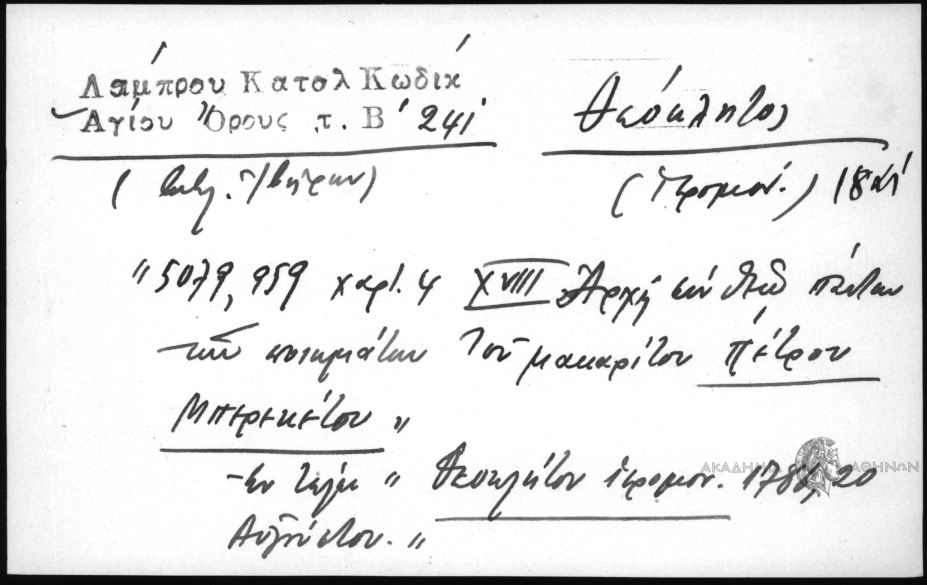 Λάμπρου Κατολ Κωδίκ
Αγίου Όρους τ. Β΄ 241
Θεόκλητος
(Ιβήρων)
(Ιερομον.) 18 αι
"5079, 959 χαρτ. 4 XVIII Ἀρχὴ σὺν Θεῷ πάντων
τῶν ποιημάτων τοῦ μακαρίτου Πέτρου
Μπερεκέτου"
- Ἐν τέλει "Θεοκλήτου ἱερομον. 20
Αὐγούστου."
ΑΚΑΔΗΜΙΑ ΑΘΗΝΩΝ